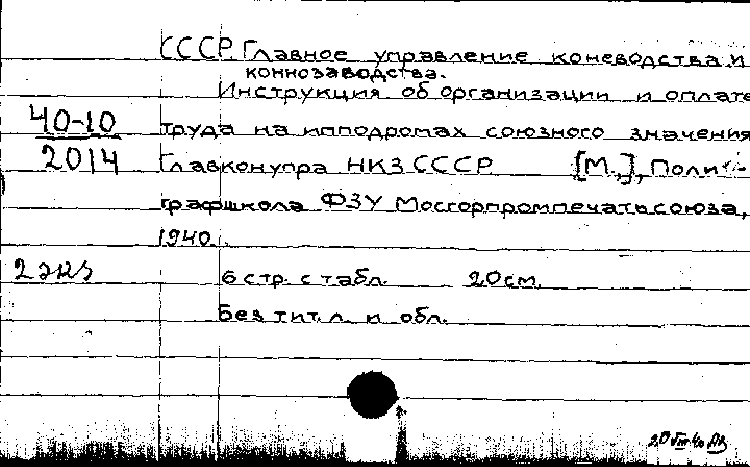 СССР. Главное управление коневодства и
коннозаводства.
Инструкция об организации и оплате
40-10
2014
труда на ипподромах союзного значения
Главконупра НКЗ СССР [М.,], Поли-
графшкола ФЗУ Мосгорпромпечатьсоюза,
1940.
2 экз
6 стр. с табл. 20 см.
Без тит. л. и обл.